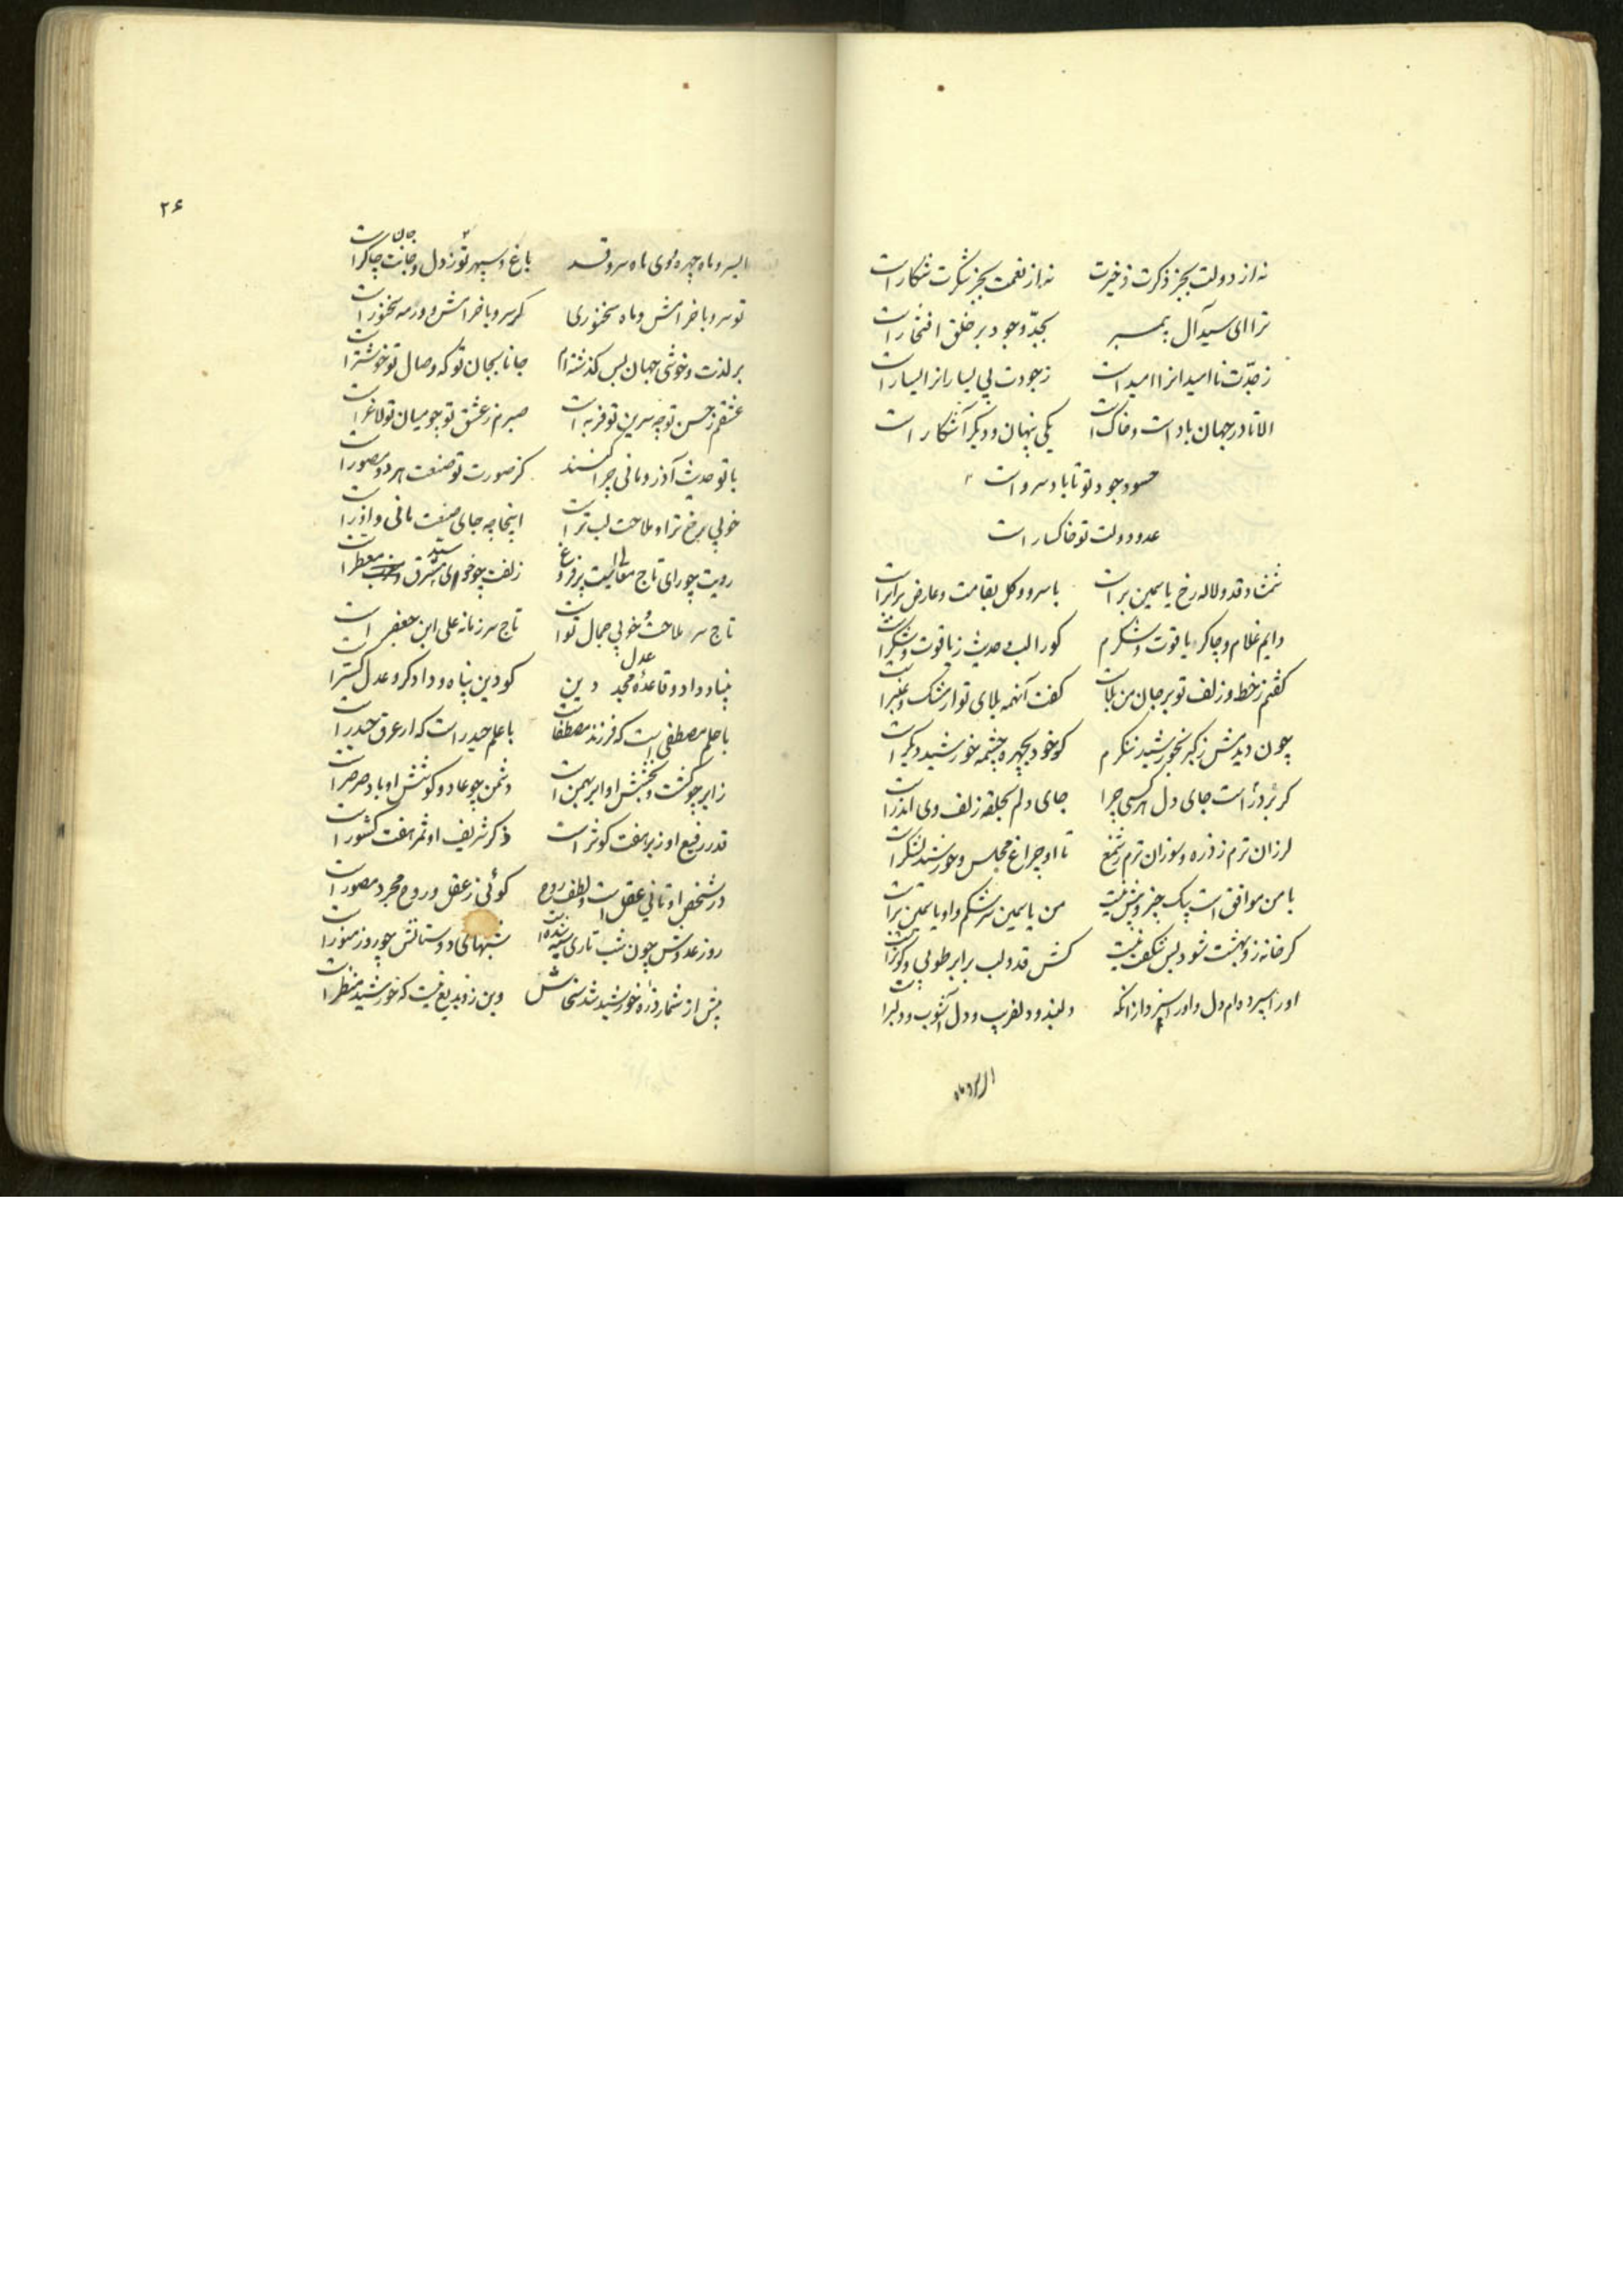 نه از دولت بجز ذکرت ذخیرت نه از نعمت بجز شکرت شکار است
ترا ای سید آل پیمبر بجد وجود بر خلق افتخار است
ز جدت نا امیدانرا امید است ز جودت بی یسارانرا یسار است
الا تا در جهان باد است و خاک است یکی پنهان و دیگر آشکار است
حسود جود تو تا باد سرو است
عدو دولت تو خاکسار است
شمشاد قد و لاله رخ یاسمین بر است با سرو و گل بقامت و عارض برابر است
دایم غلام و چاکر یاقوت و شکرم کورا لب و حدیث ز یاقوت و شکر است
کفتم ز خط و زلف تو بر جان من بلاست کفت آنهمه بلای تو از مشک و عنبر است
چون دیدمش ز کبر بخورشید ننکرم کو خود بچهره چشمه خورشید دیکر است
کر بر در است جای دل هر کسی چرا جای دلم بحلقه زلف وی اندر است
لرزان ترم ز ذره و سوزان ترم ز شمع تا او چراغ مجلس و خورشید لشکر است
با من موافق است بیک چیز و بیش نیست من یاسمین سرشکم و او یاسمین بر است
کر خانه زو بهشت شود بس شکفت نیست کش قد و لب برابر طوبی و کوثر است
اورا سپرده ام دل و اورا سپرد از آنکه دلبند و دلفریب و دل آشوب و دلبر است
ای سرو ماه چهره و ای ماه سرو قد باغ و سپهر تو ز دل و جانت چاکر است جان
تو سرو با خرامش و ماه سخنوری کر سرو با خرامش و ور مه سخنور است
بر لذت و خوشی جهان بس کذشته ام جانا بجان تو که وصال تو خوشتر است
عشقم ز حسن تو چو سرین تو فربه است صبرم ز عشق تو چو میان تو لاغر است
با تو حدیث آذر و مانی چرا کنند کز صورت تو صنعت هر دو مصور است
خوبی برخ ترا و ملاحت بلب تر است اینجا چه جای صنعت مانی و آذر است
رویت چو رای تاج معالیست پر فروغ زلفت چو خوی سید مشرق معطر است
تاج سر ملاحت و خوبی جمال تو است تاج سر زمانه علی ابن جعفر است
بنیاد داد و قاعده مجد دین عدل کو دین پناه و دادکر و عدل کستر است
با حلم مصطفی است که فرزند مصطفاست با علم حیدر است که از عرق حیدر است
زایر چو کشت و بخشش او ابر بهمن است دشمن چو عاد و کوشش او باد صرصر است
قدر رفیع او ز بر هفت کوثر است ذکر شریف او ثمر هفت کشور است
در شخص او تانی عقل است و لطف روح کوئی ز عقل و روح مجرد مصور است
روز عدوش چون شب تاری سیه شده است شبهای دوستانش چو روز منور است
بیش از شمار ذره خورشید شد سخاش وین زو بدیع نیست که خورشید منظر است
۲۶